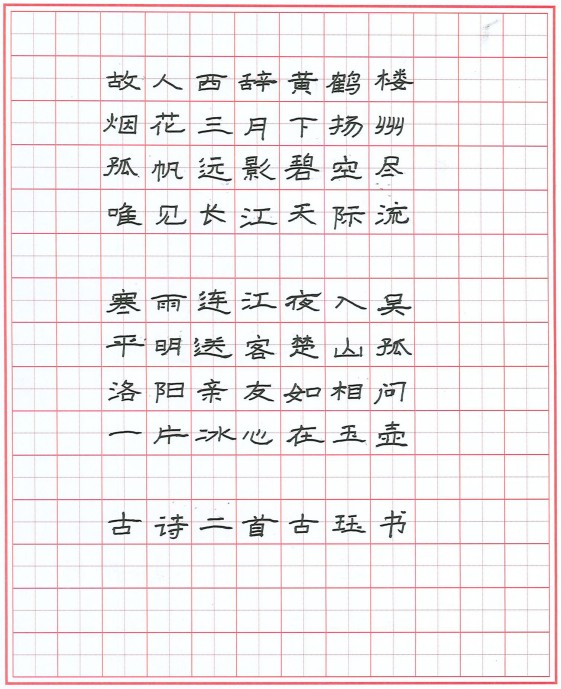 故人西辞黄鹤楼
烟花三月下扬州
孤帆远影碧空尽
唯见长江天际流
寒雨连江夜入吴
平明送客楚山孤
洛阳亲友如相问
一片冰心在玉壶
古诗二首古珏书